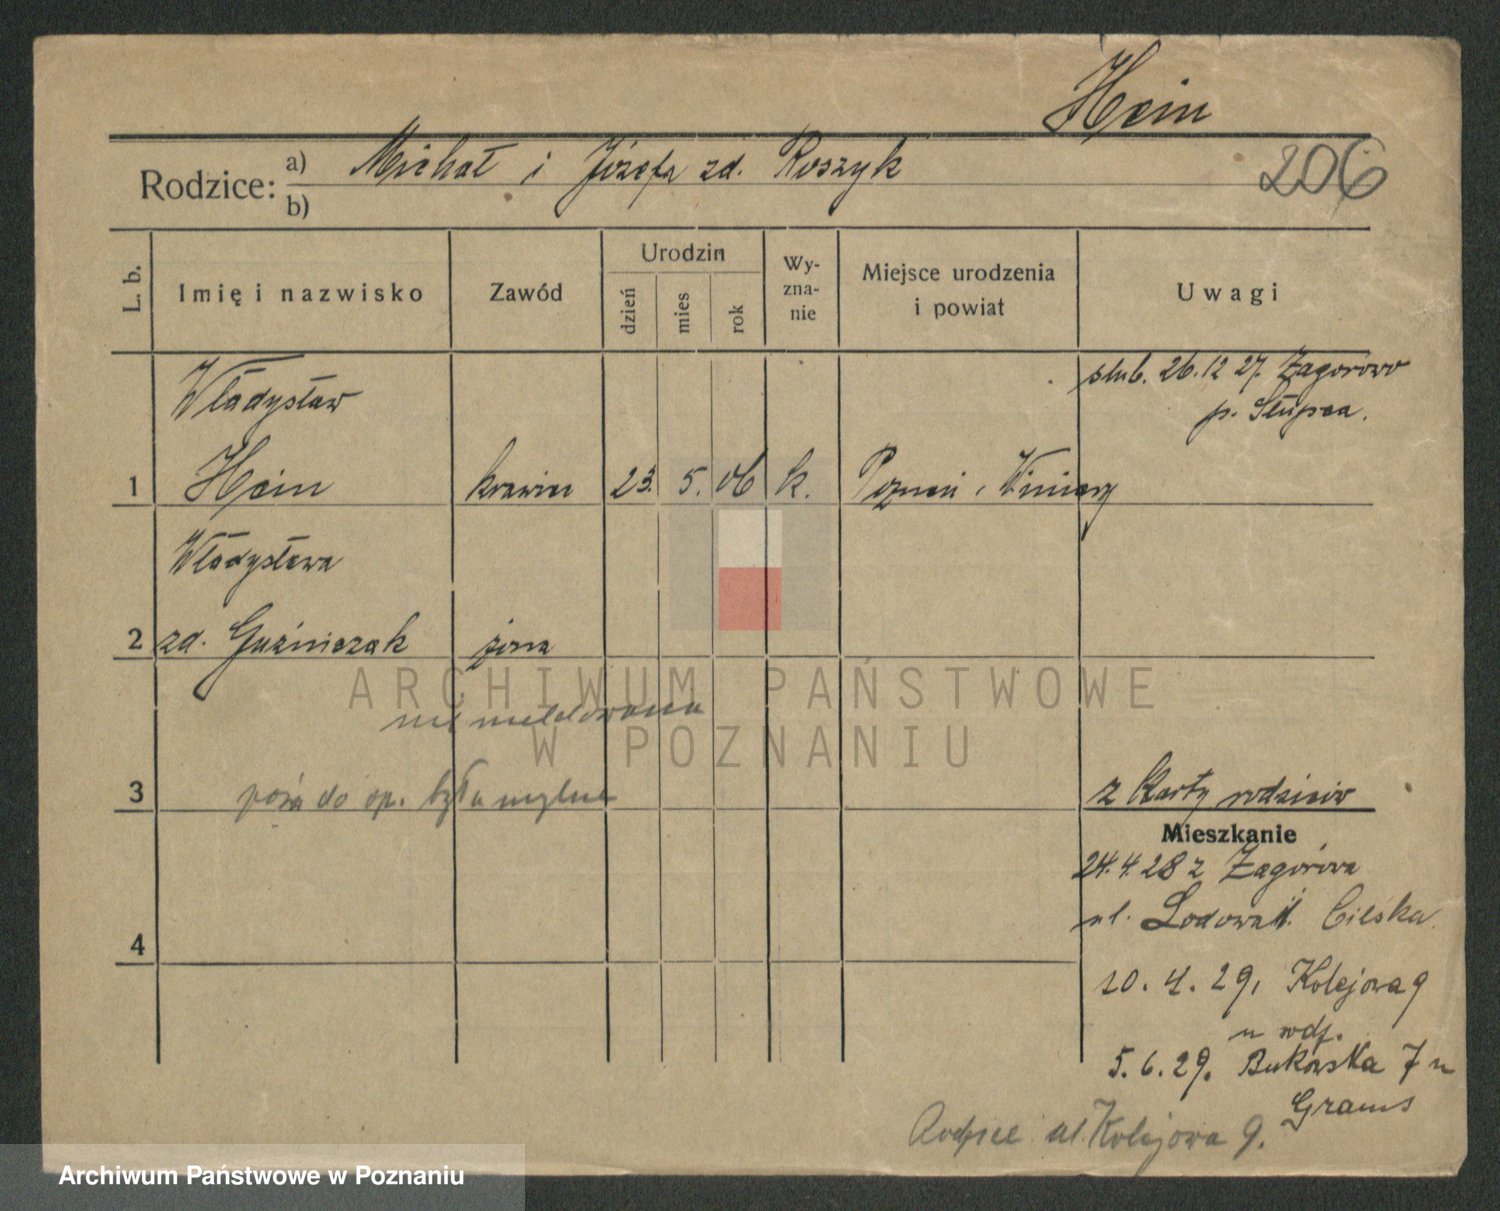 Hein
206
Rodzice: a) Michał i Józefa zd. Roszyk
b)
L. b.
Imię i nazwisko
Zawód
Urodzin
dzień
mies
rok
Wy-
zna-
nie
Miejsce urodzenia
i powiat
Uwagi
Władysław
ślub. 26.12 27. Zagórowo
p. Słupca.
1 Hein krawiec 23. 5. 06 k. Poznań, Winiary
Władysława
2 zd. Guźniczak żona
nie meldowana
3 do op. była mylna
z Karty rodziców
Mieszkanie
24.4.28 z Zagórowa
ul. Lodowa 1. Cilska
4
10. 4. 29, Kolejowa 9
u rodz.
5. 6. 29. Bukowska 7 u
Grams
Rodzice ul. Kolejowa 9.
ARCHIWUM PAŃSTWOWE
W POZNANIU
Archiwum Państwowe w Poznaniu